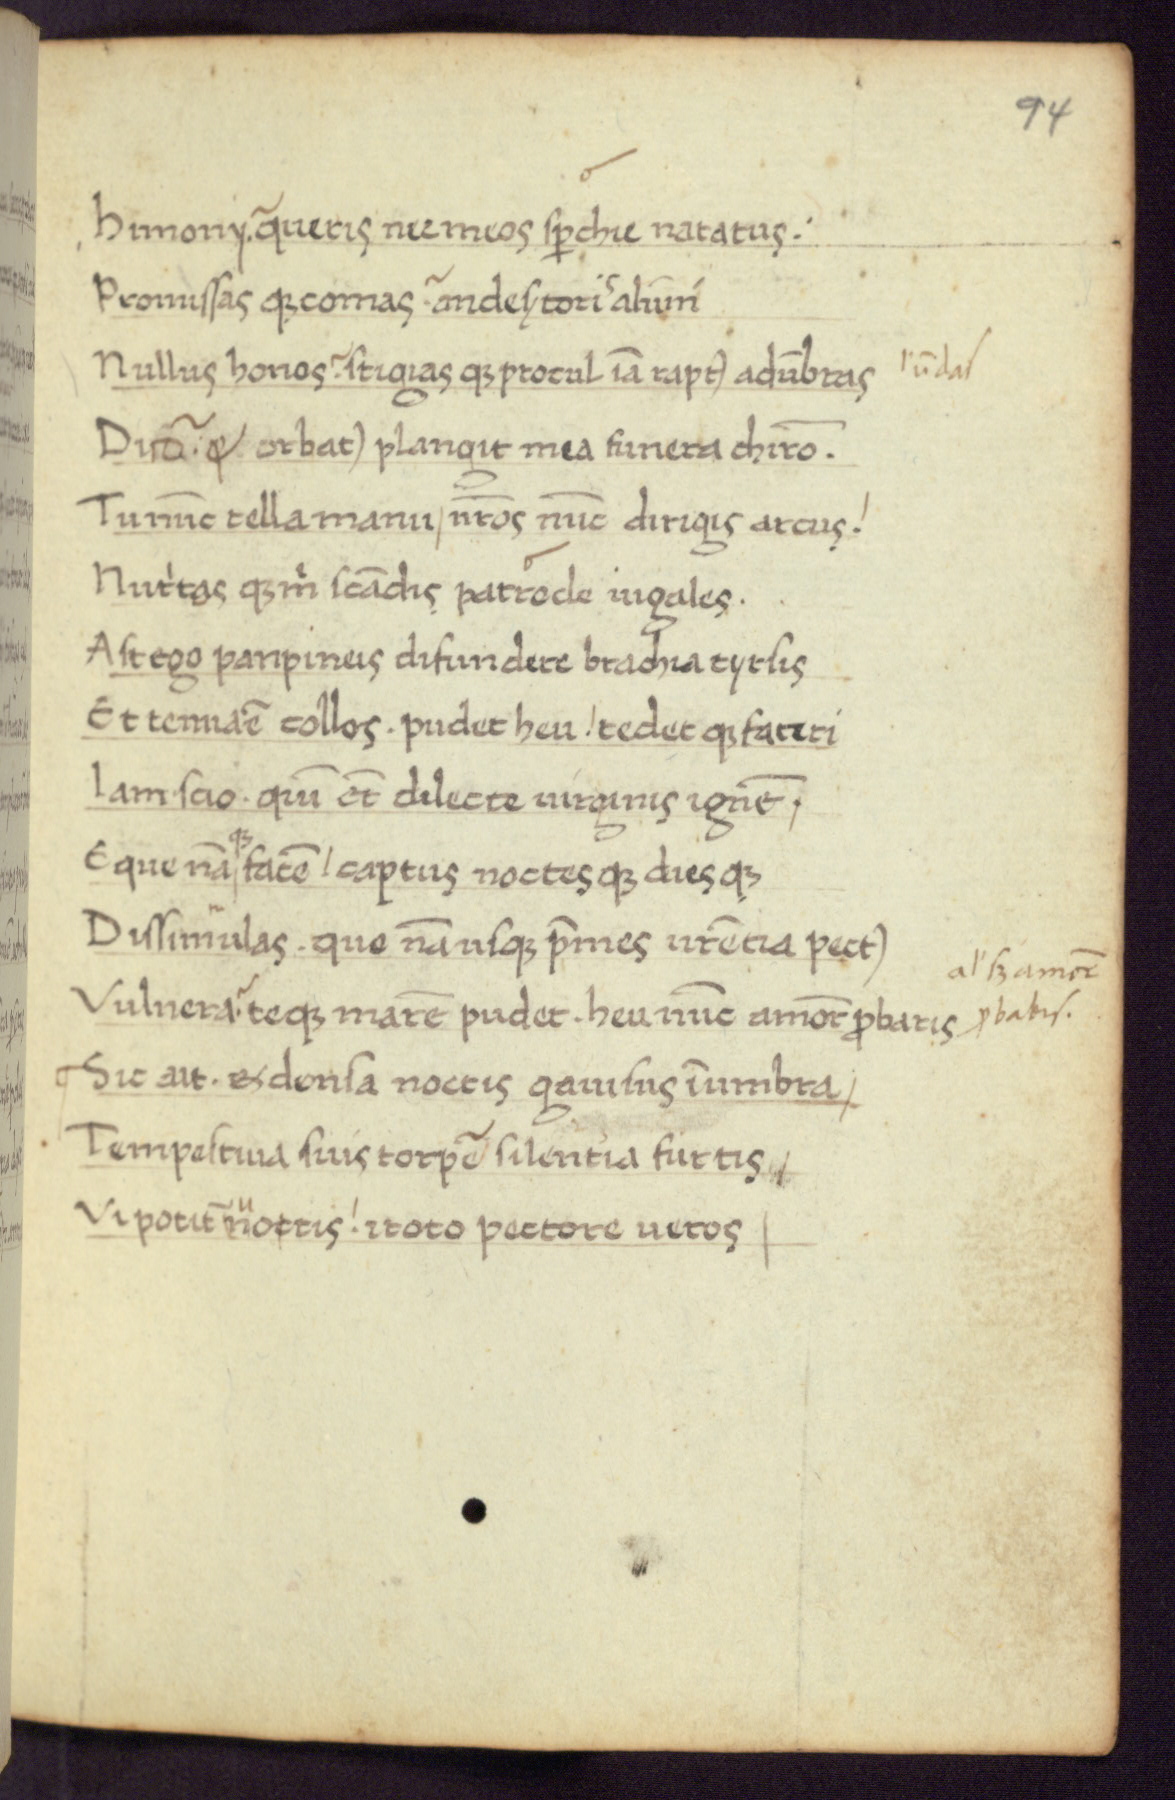 94
himonij. queris nec meos sperchie natatus.
Promissas qꝫ comas an desertori alumni
Nullus honos stigias qꝫ procul iā rapt) adūbras l' ūdas
orbat) plangit mea funera chirō.
Tu nūc tella manu / nr̄os nūc dirigis arcus!
Nutr'tos qꝫ m scādis patrode iugales.
Ast ego panpineis difundere brachia tyrsis
Et tenuaē collos. pudet heu! tedet qꝫ fateri
Iam scio. quī ēt dilecte uirginis ignē /
Eque nā qꝫ facē! captus noctes qꝫ dies qꝫ
Dissimulas. que nā usqꝫ p̄mes urētia pect)
Vulnera teqꝫ marē pudet. heu nūc amor̄ ꝓbatis
al' sꝫ amor̄
ꝓbabis.
Sic ait. & densa noctis gauisus ī umbra /
Tempestiua suis torpē silentia furtis /
Vi potit̄ uottis! i toto pectore ueros